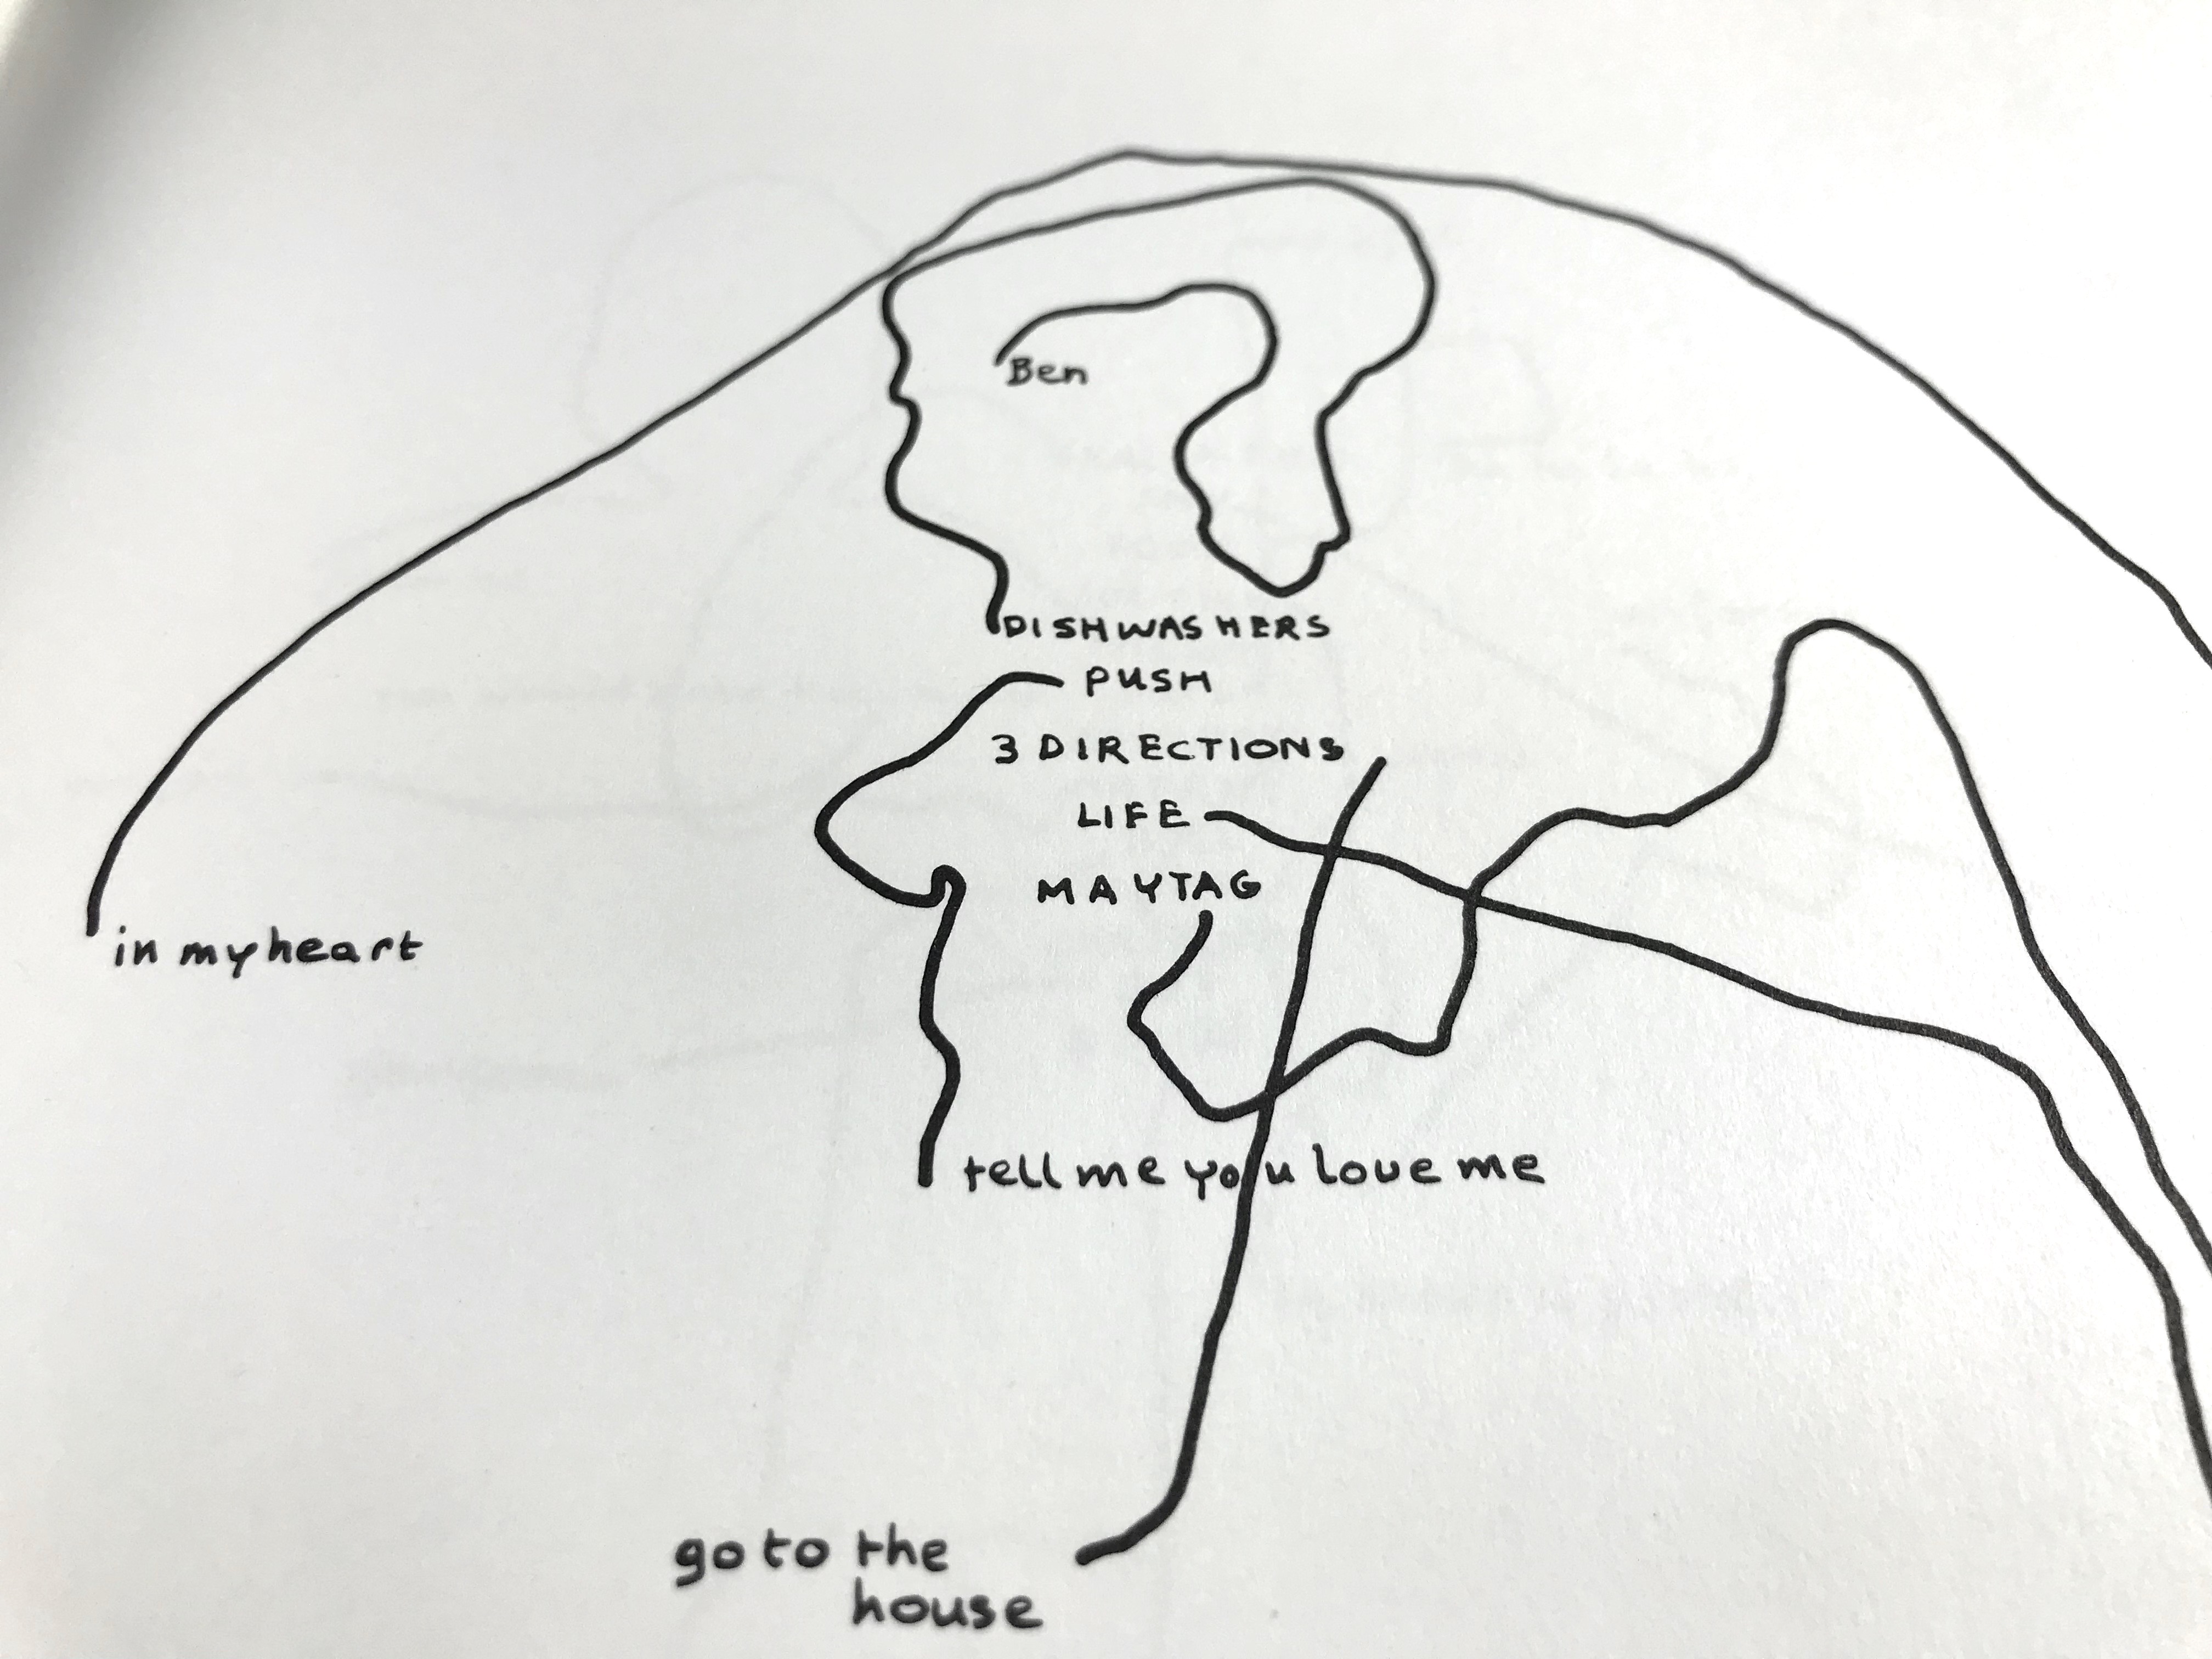 Ben
DISHWASHERS
PUSH
3 DIRECTIONS
LIFE
MAYTAG
in my heart
tell me you love me
go to the
house